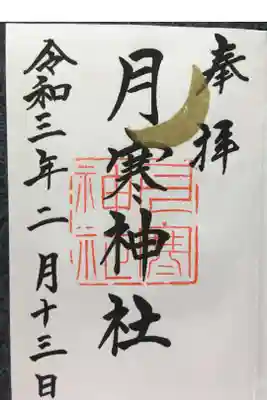 奉拝
月寒神社
月寒
神社
令和三年二月十三日